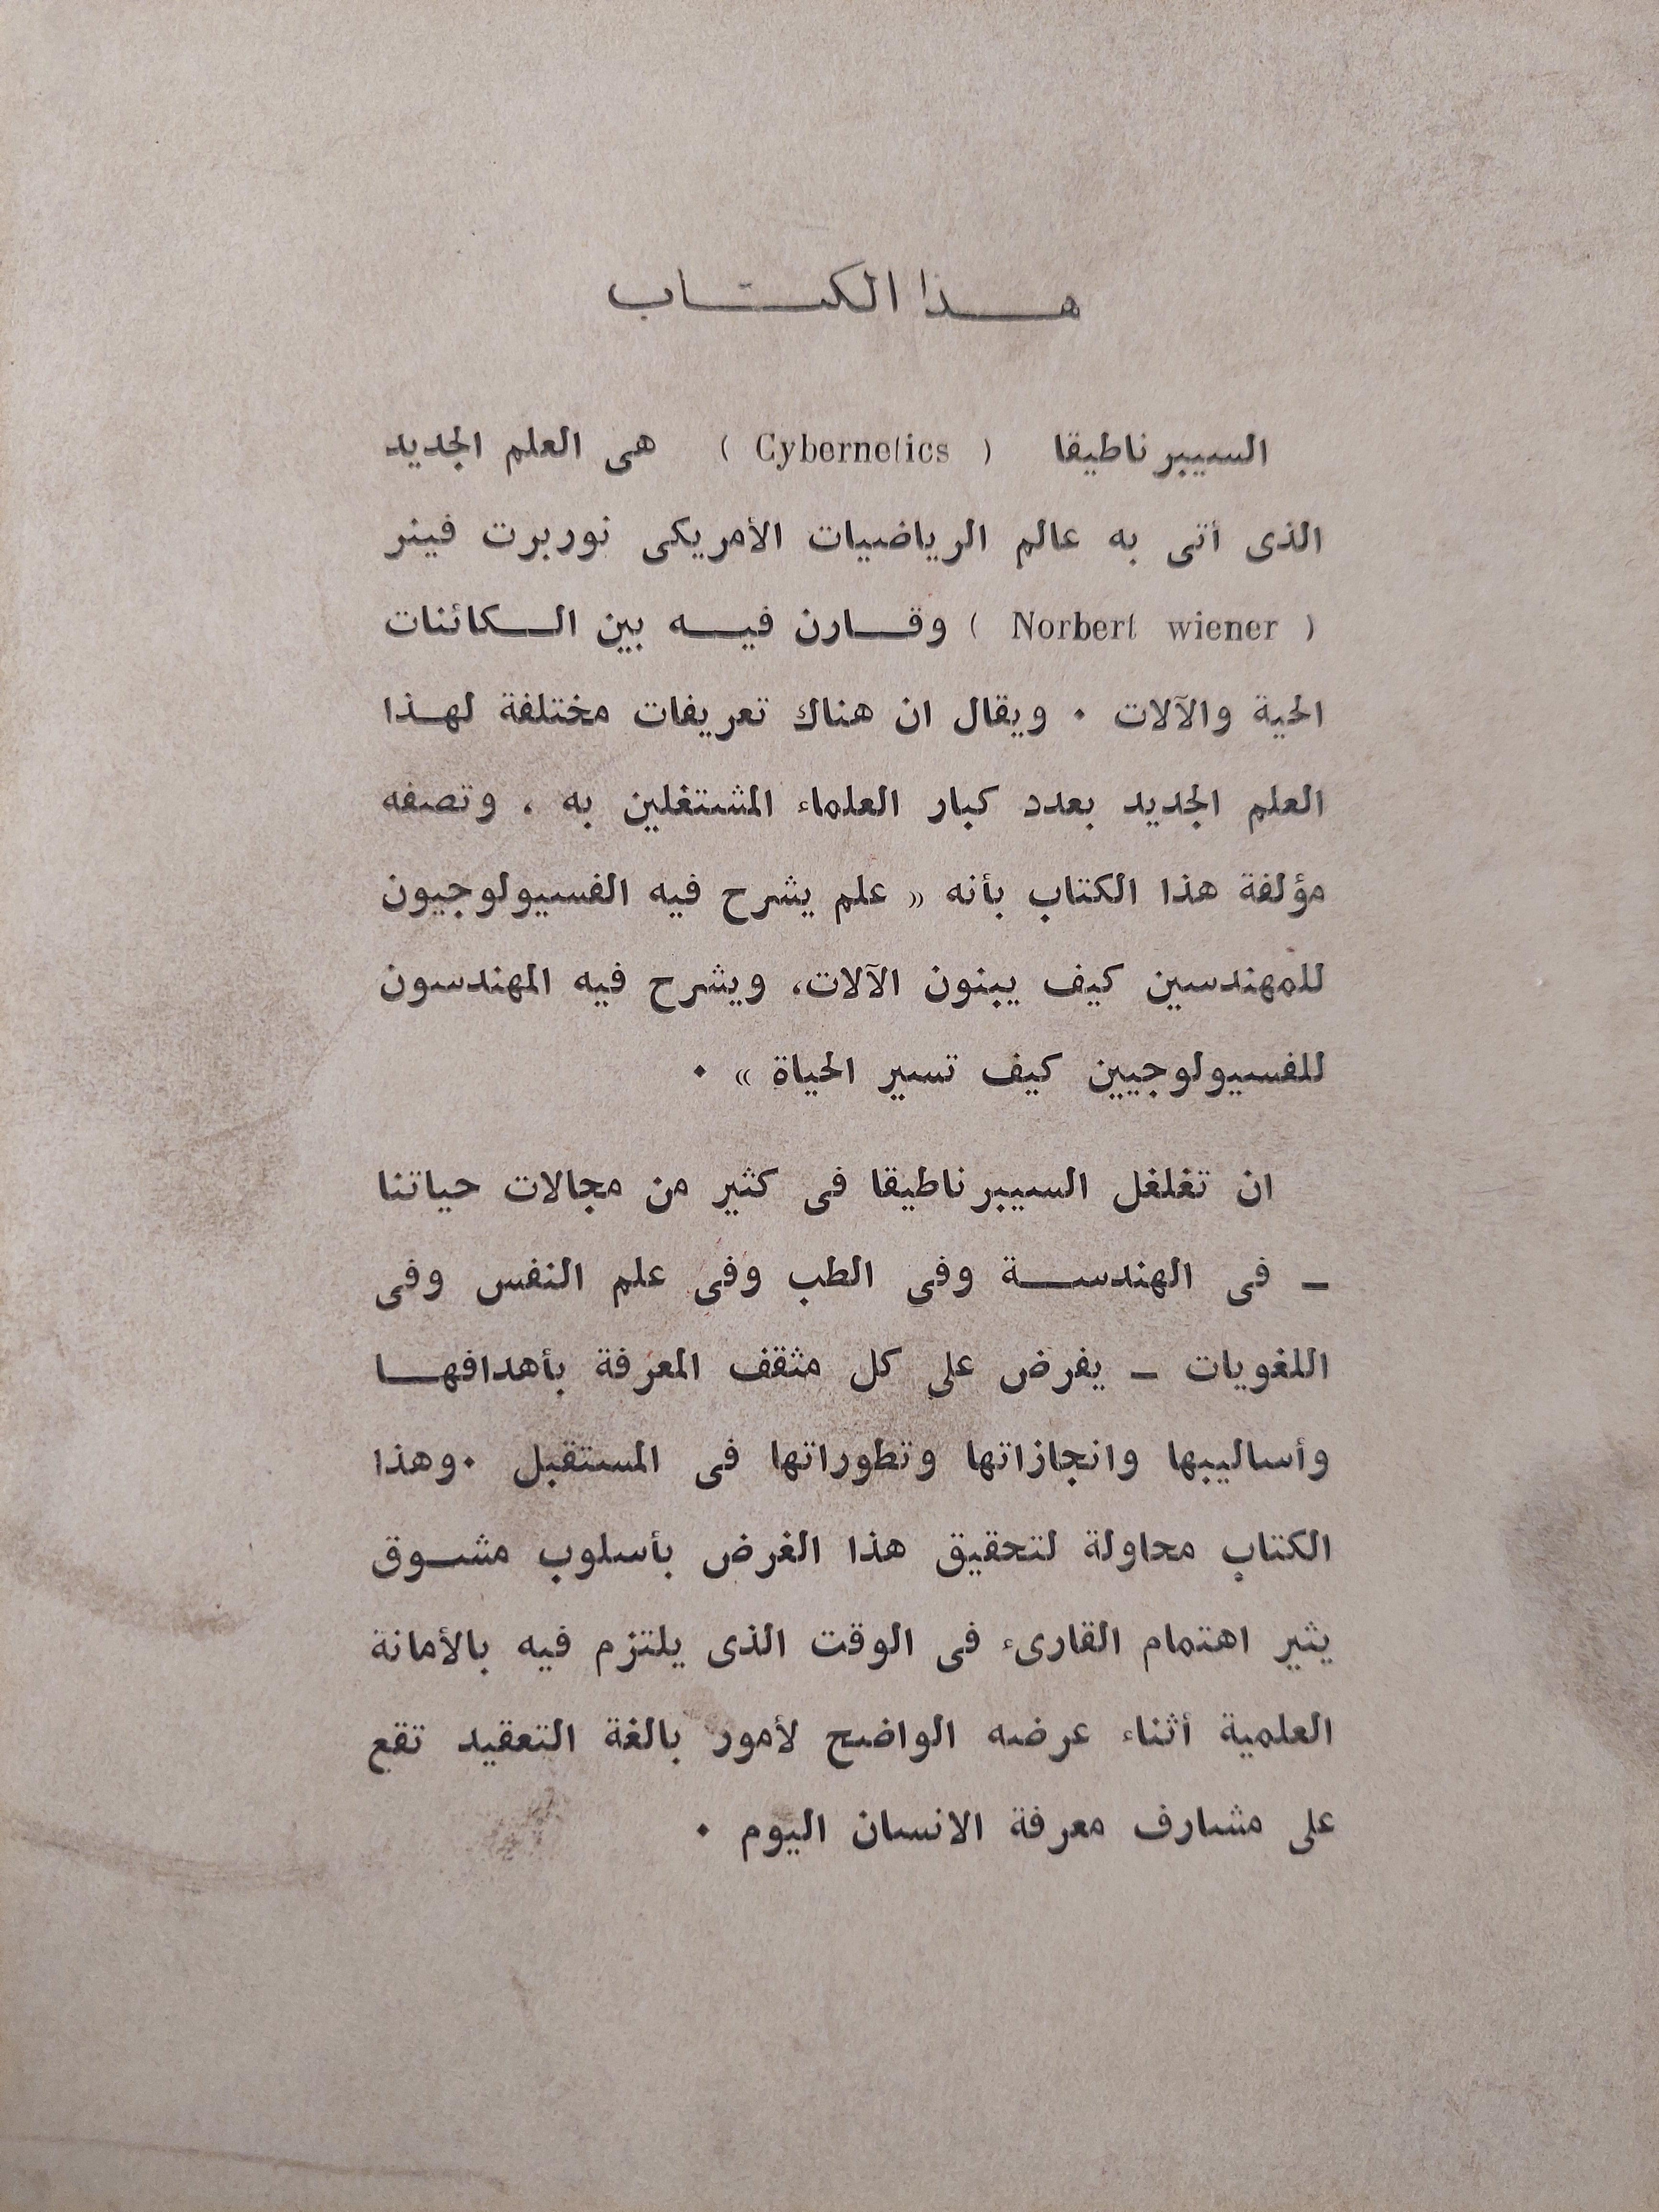 هذا الكتاب
السيبرناطيقا ( Cybernetics ) هى العلم الجديد
الذى أتى به عالم الرياضيات الأمريكى نوربرت فينر
( Norbert wiener ) وقارن فيه بين الكائنات
الحية والآلات . ويقال ان هناك تعريفات مختلفة لهذا
العلم الجديد بعدد كبار العلماء المشتغلين به ، وتصفه
مؤلفة هذا الكتاب بأنه « علم يشرح فيه الفسيولوجيون
للمهندسين كيف يبنون الآلات، ويشرح فيه المهندسون
للفسيولوجيين كيف تسير الحياة » .
ان تغلغل السيبرناطيقا فى كثير من مجالات حياتنا
ـ فى الهندسة وفى الطب وفى علم النفس وفى
اللغويات ـ يفرض على كل مثقف المعرفة بأهدافها
وأساليبها وانجازاتها وتطوراتها فى المستقبل .وهذا
الكتاب محاولة لتحقيق هذا الغرض بأسلوب مشوق
يثير اهتمام القارىء فى الوقت الذى يلتزم فيه بالأمانة
العلمية أثناء عرضه الواضح لأمور بالغة التعقيد تقع
على مشارف معرفة الانسان اليوم .